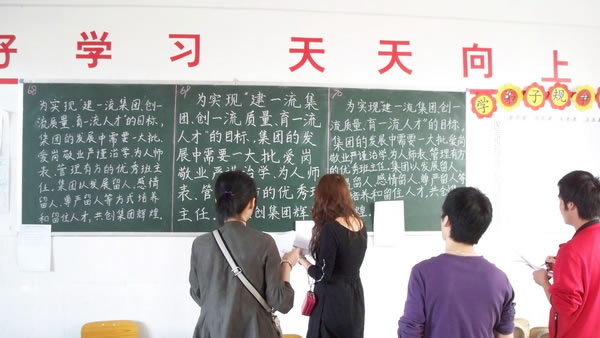 好学习 天天向上
学子规
68
为实现"建一流集团,创一
流质量,育一流人才"的目标,
集团的发展中需要一大批
爱岗敬业严谨治学,为人师
表,管理有方的优秀班主
任,集团以发展留人,感情
留人,尊严留人等方式培养
和留住人才,共创集团辉煌.
69
为实现"建一流集
团,创一流质量,育一流
人才"的目标,集团的发
展中需要一大批爱岗
敬业严谨治学,为人师
表,管方的优秀班
主任,创集团辉煌.
70
为实现"建一流集团,创一
流质量,育一流人才"的目标,
集团的发展中需要一大批爱岗
敬业严谨治学,为人师表,管理有方
的优秀班主任,集团以发展
留人,感情留人,尊严留人等
培养和留住人才,共